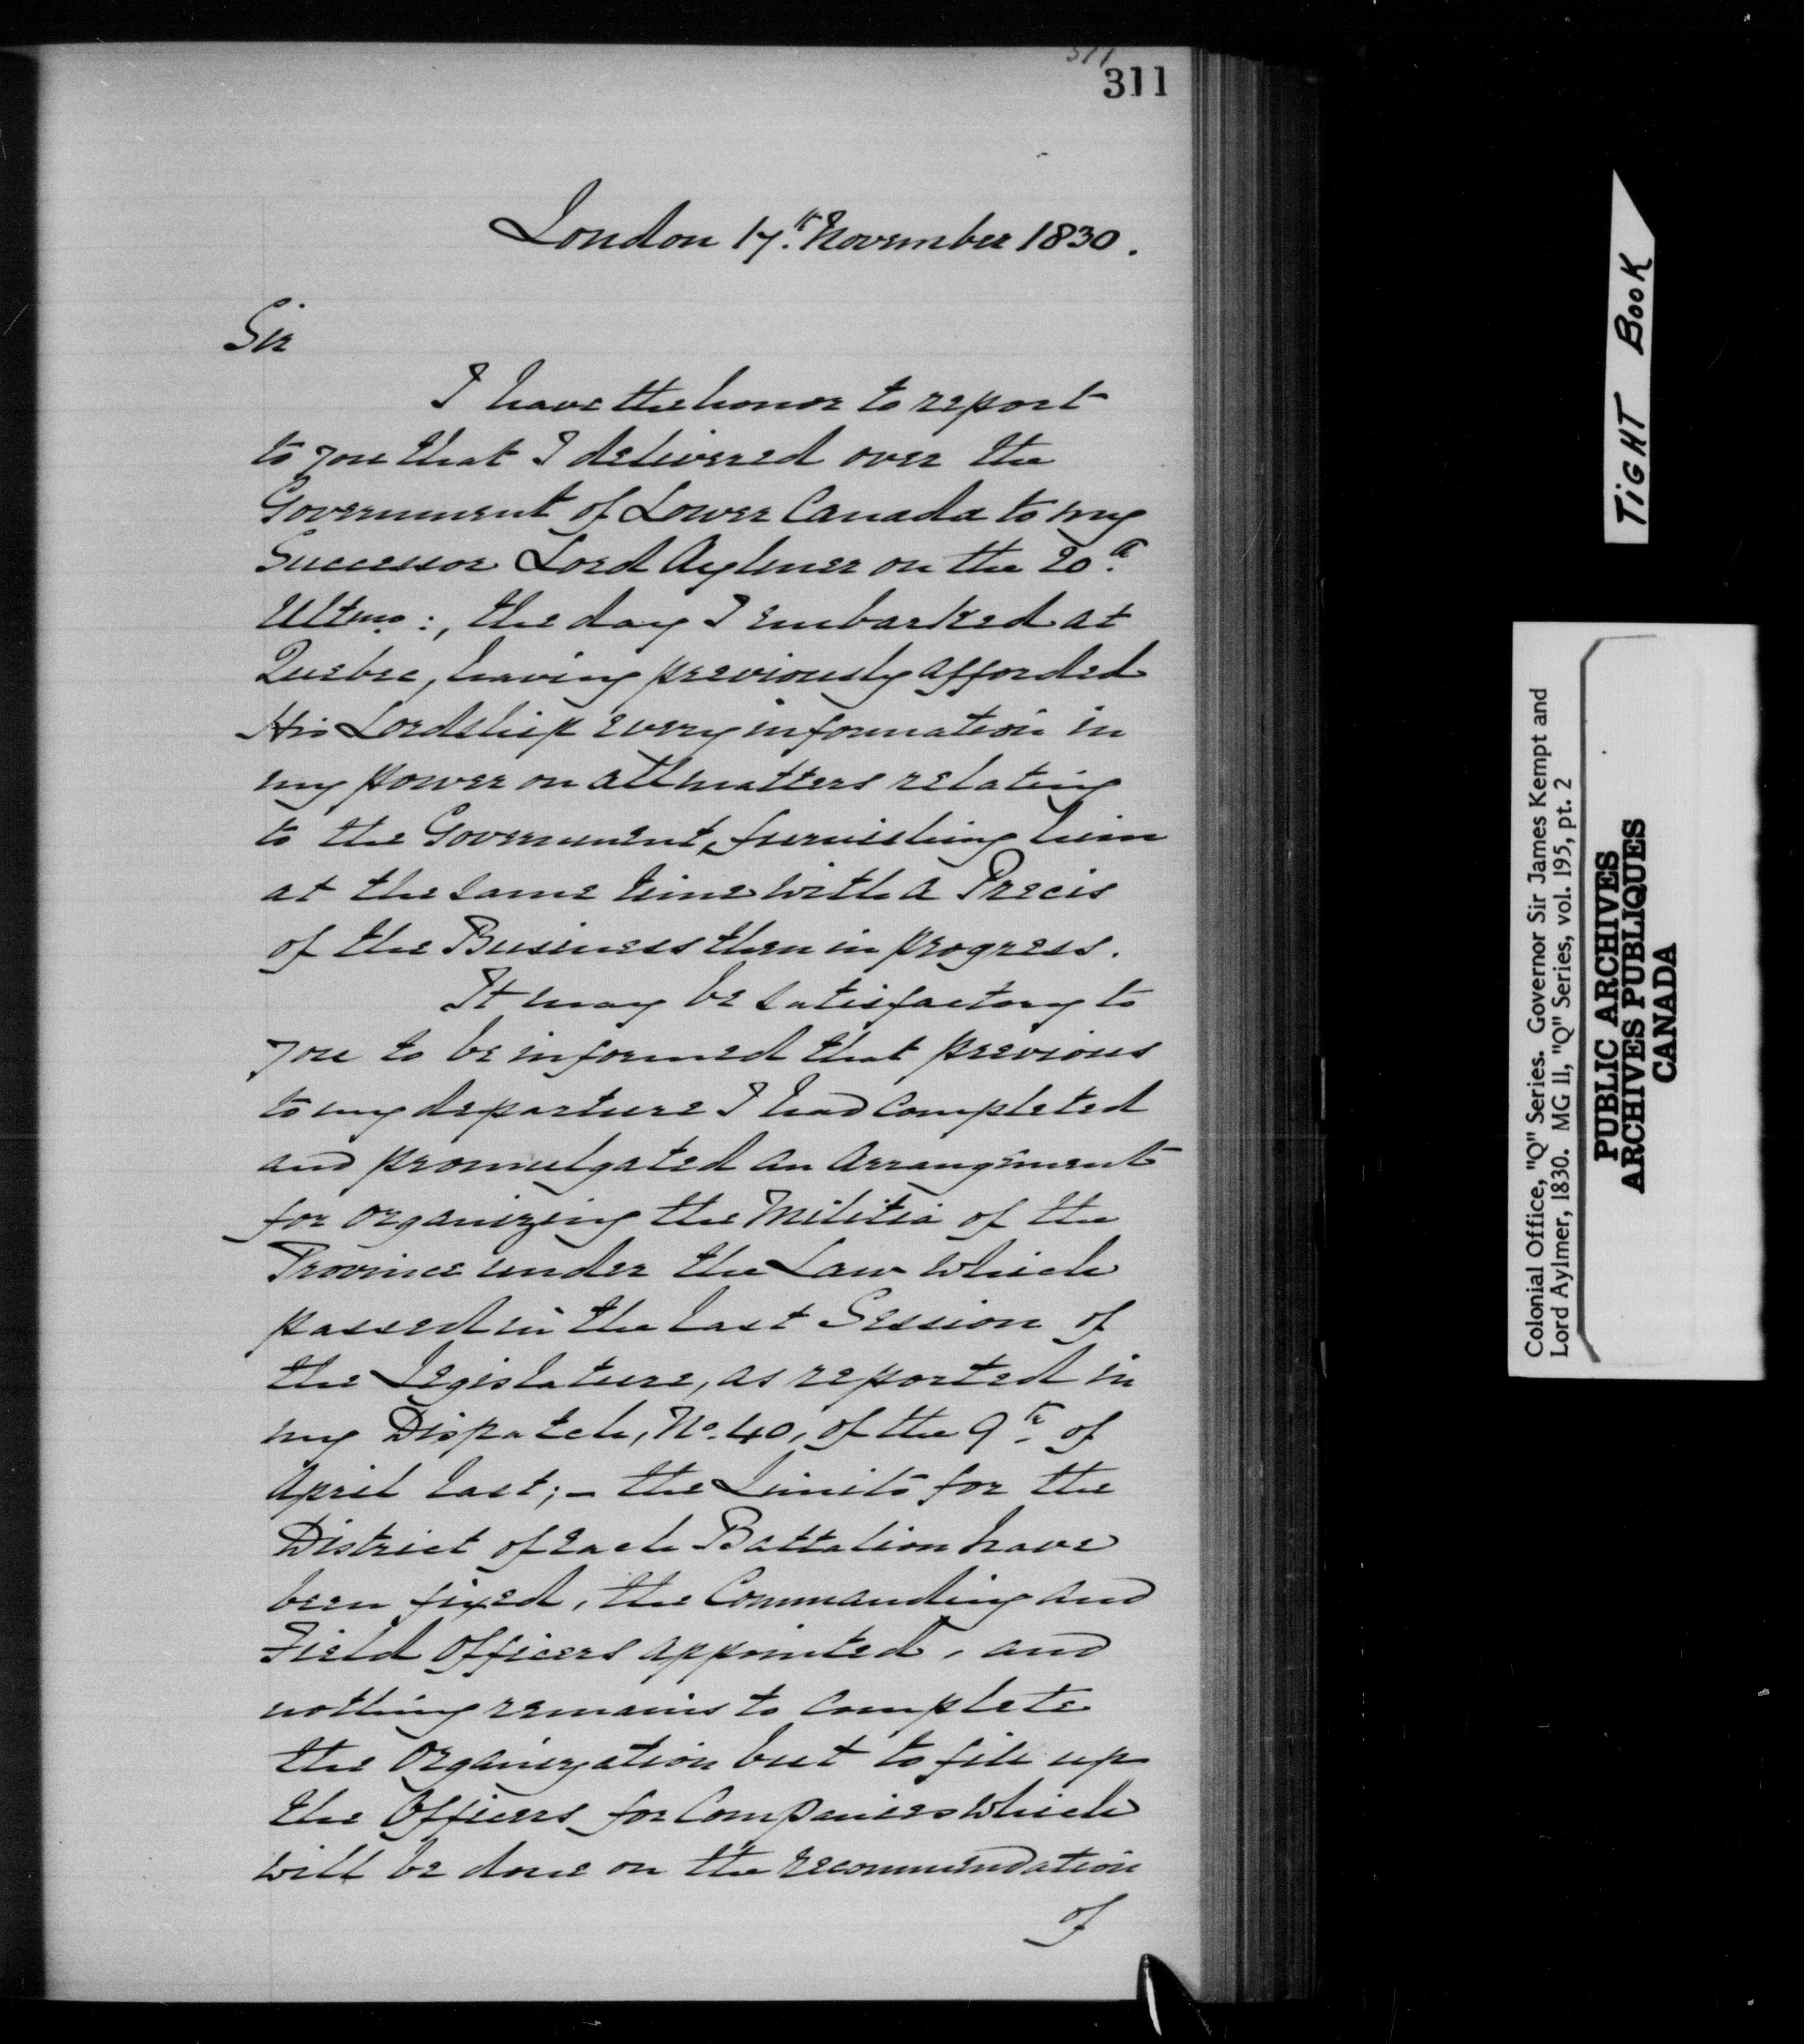 311
311
London 17th November 1830.
Sir
I have the honor to report
to you that I delivered over the
Government of Lower Canada to my
Successor Lord Aylmer on the 20th
Ultmo:, the day I embarked at
Quebec, having previously afforded
His Lordship every information in
my power on all matters relating
to the Government, furnishing him
at the same time with a Precis
of the Business then in progress.
It may be satisfactory to
you to be informed that previous
to my departure I had completed
and promulgated an arrangement
for organizing the Militia of the
Province under the Law which
passed in the last Session of
the Legislature, as reported in
my Dispatch, No. 40, of the 9th of
April last; - the Limits for the
District of each Battalion have
been fixed, the Commanding and
Field Officers appointed, and
nothing remains to complete
the Organization but to fill up
the Officers for Companies which
will be done on the recommendation
of
TIGHT BOOK
Colonial Office, "Q" Series. Governor Sir James Kempt and
Lord Aylmer, 1830. MG 11, "Q" Series, vol. 195, pt. 2
PUBLIC ARCHIVES
ARCHIVES PUBLIQUES
CANADA